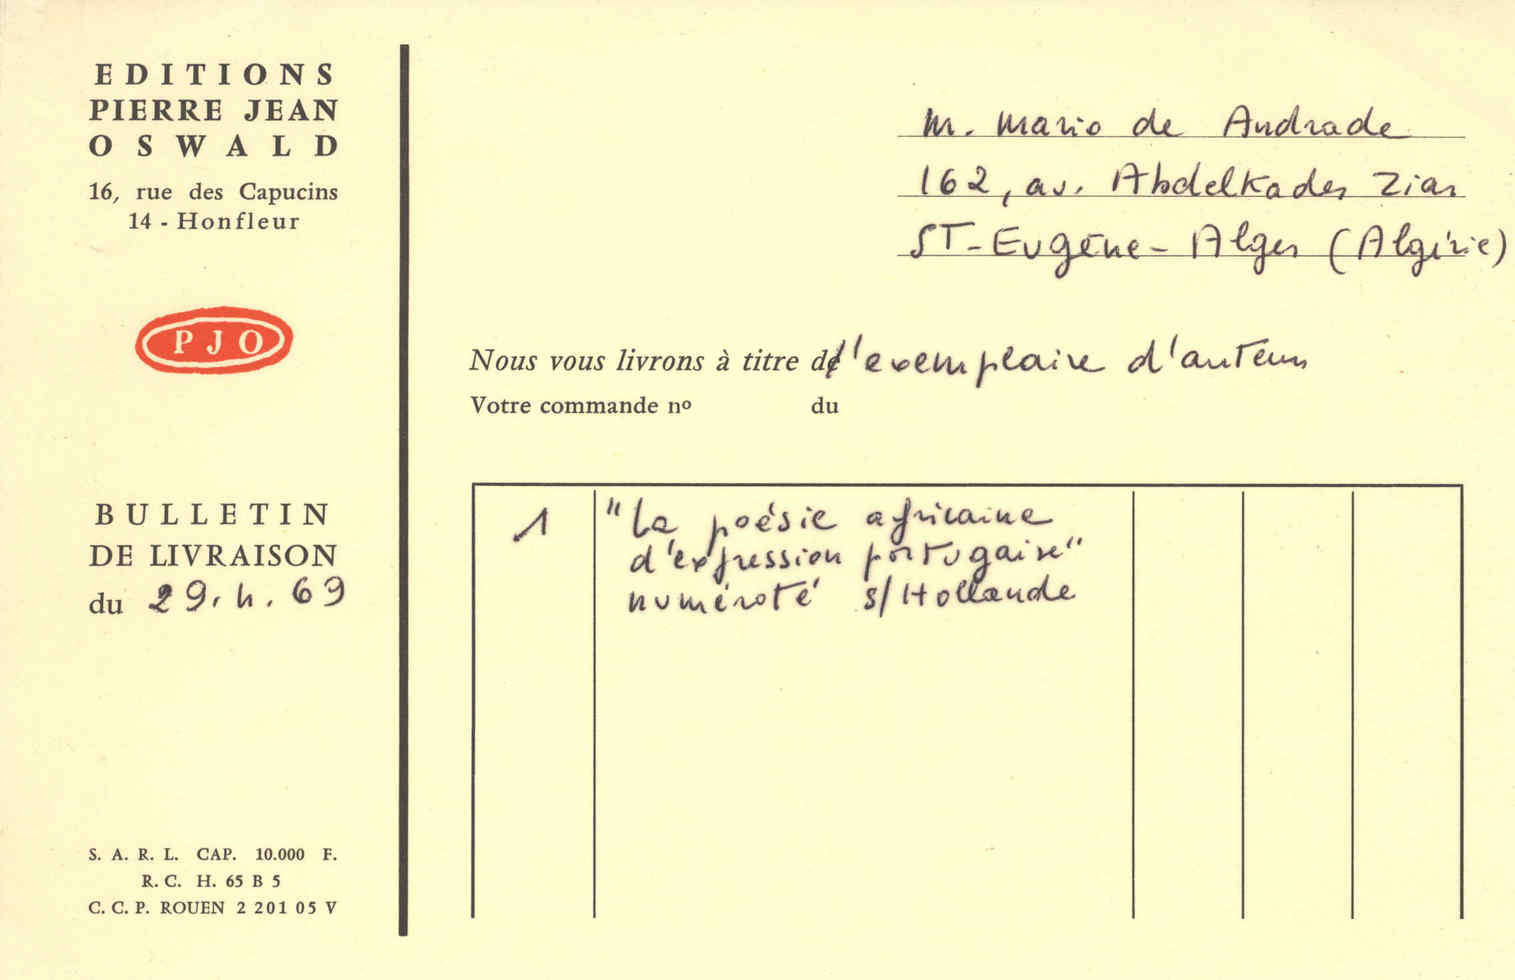 EDITIONS
PIERRE JEAN
OSWALD
16, rue des Capucins
14 - Honfleur
PJO
BULLETIN
DE LIVRAISON
du 29.4.69
S. A. R. L. CAP. 10.000 F.
R. C. H. 65 B 5
C. C. P. ROUEN 2 201 05 V
M. Mario de Andrade
162, av. Abdelkader Ziar
ST-Eugène - Alger (Algérie)
Nous vous livrons à titre d'exemplaire d'auteur
Votre commande nº du
1 "La poésie africaine
d'expression portugaise"
numéroté s/Hollande